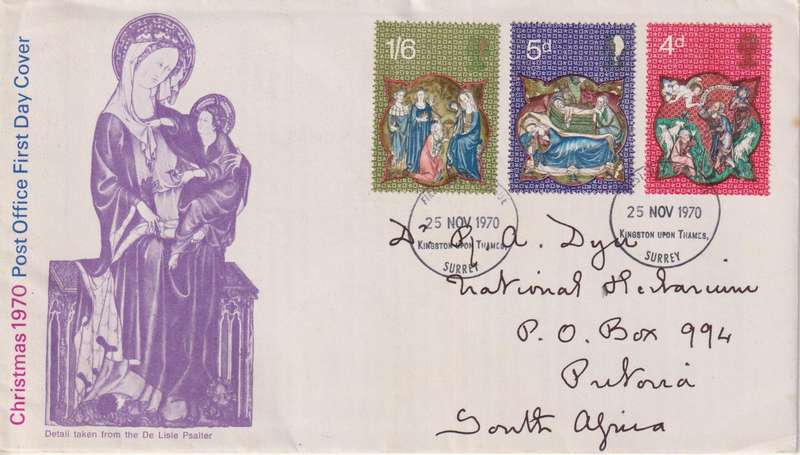 Christmas 1970 Post Office First Day Cover
1/6
5d
4d
25 NOV 1970
KINGSTON UPON THAMES,
SURREY
25 NOV 1970
KINGSTON UPON THAMES,
SURREY
Dr R. A. Dyer
National Herbarium
P. O. Box 994
Pretoria
South Africa
Detail taken from the De Lisle Psalter